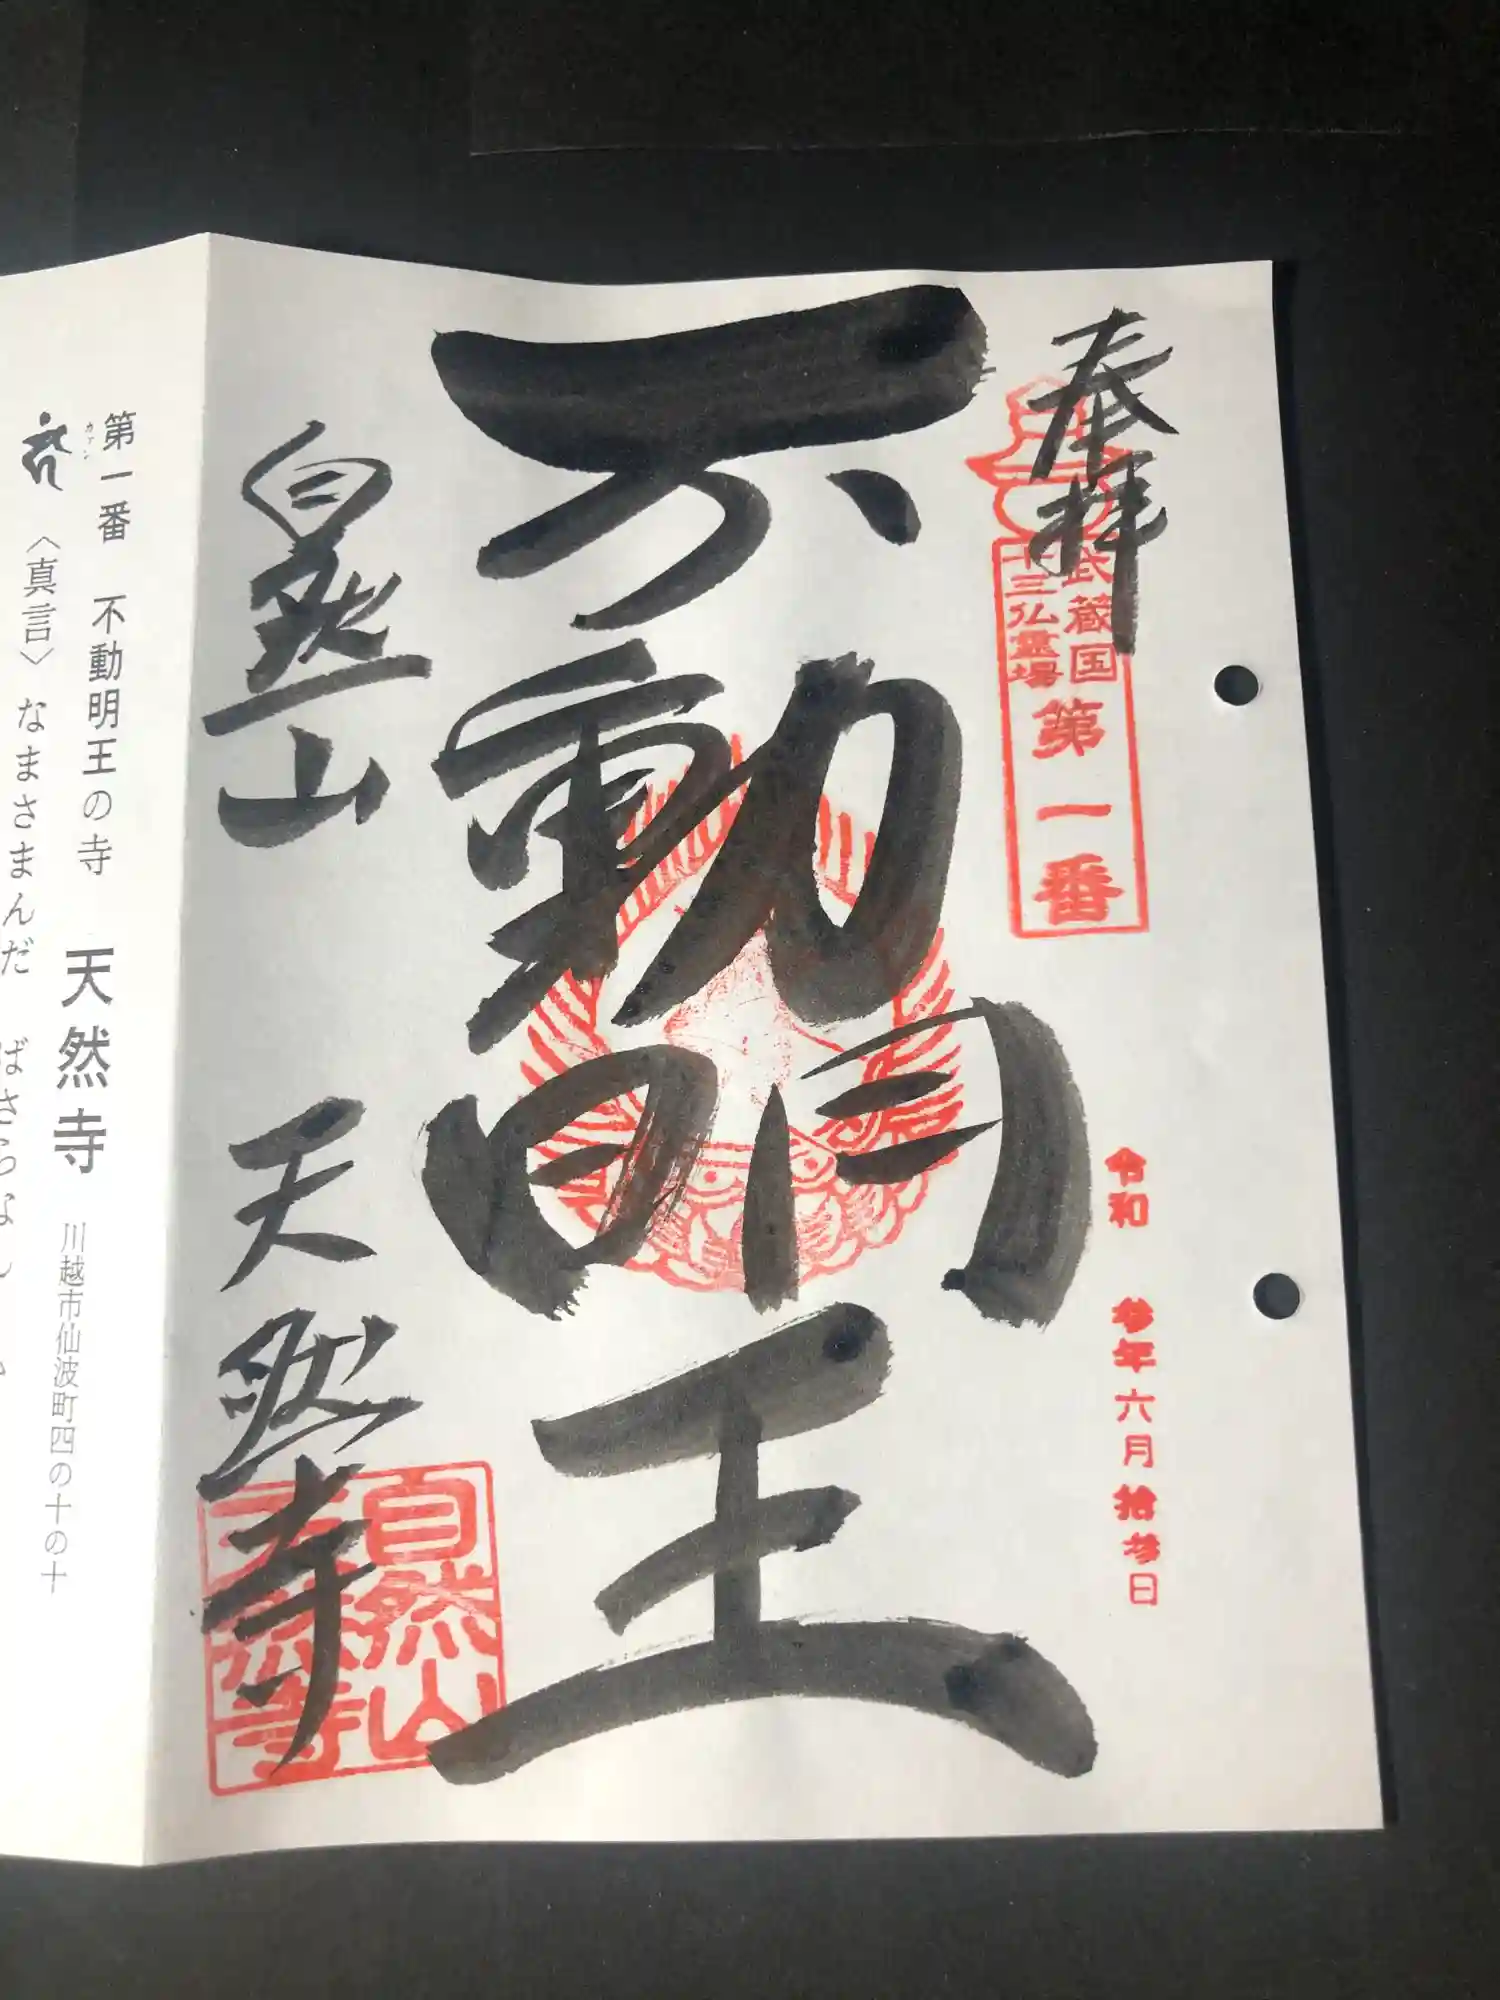 奉拝
武蔵国
十三仏霊場
第一番
令和 参年六月拾参日
不動明王
自然山 天然寺
自然山
天然寺
第一番 不動明王の寺 天然寺 川越市仙波町四の十の十
カアン
〈真言〉 なまさまんだ ばさらなん